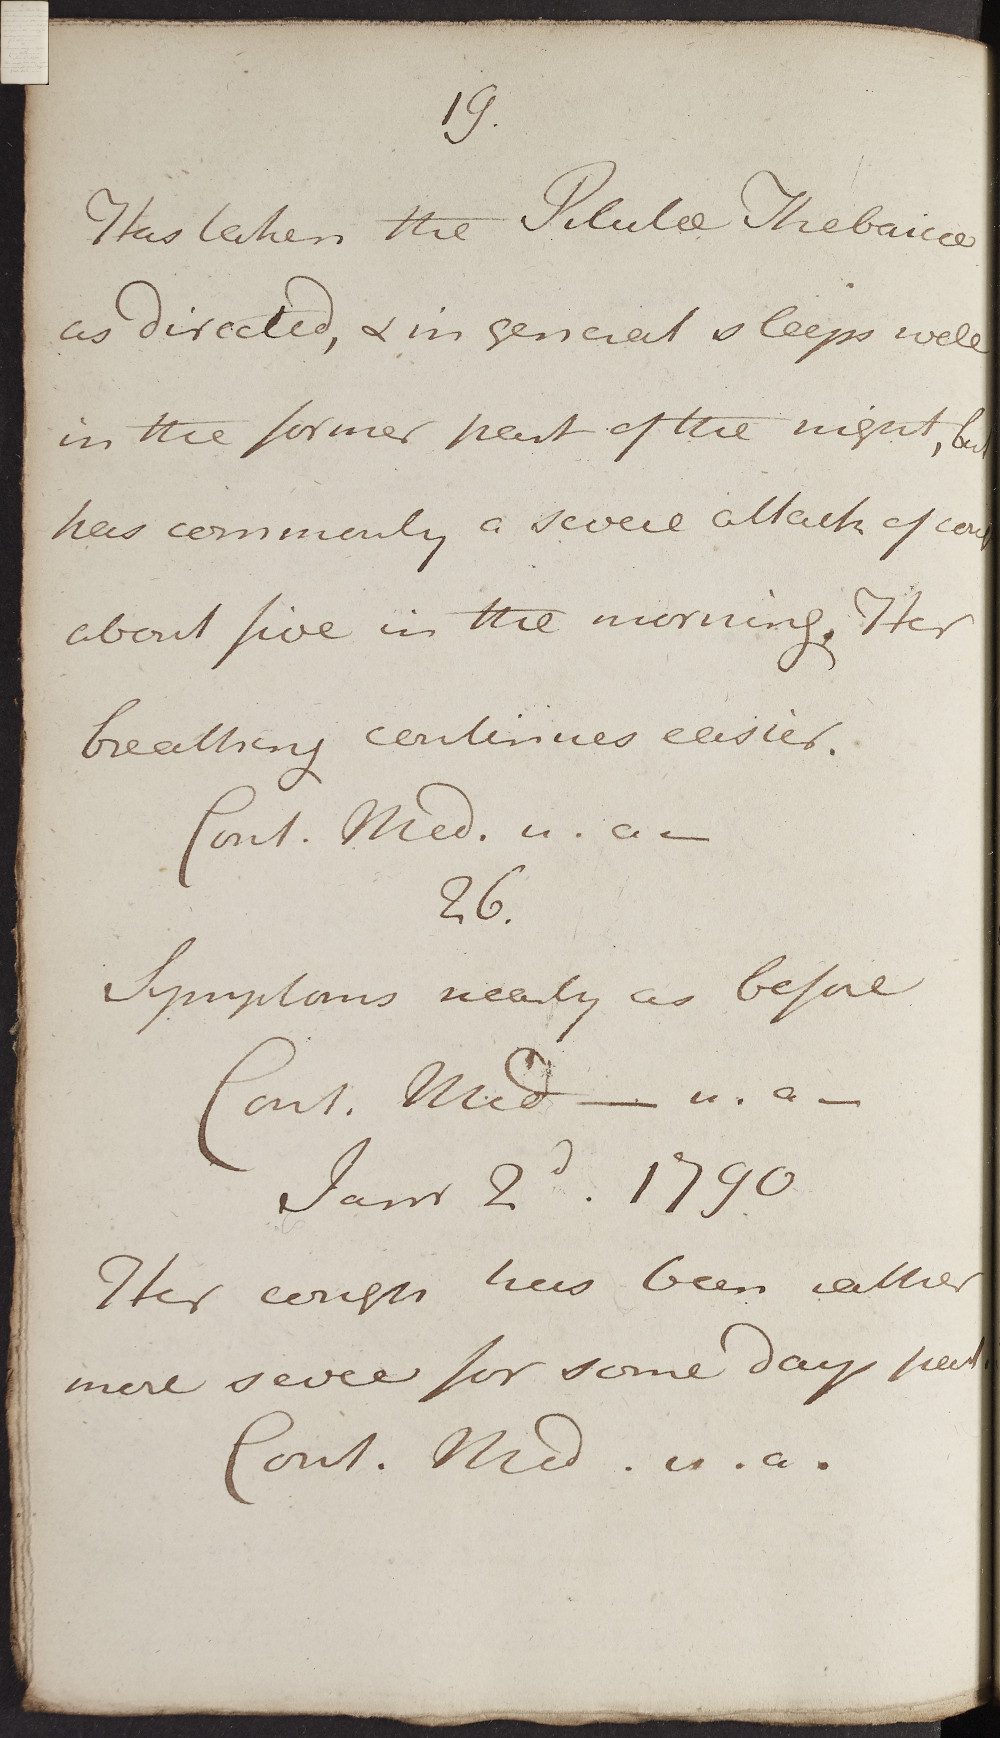 19.
Has taken the Pilulæ Thebaicæ
as directed, & in general sleeps well
in the former part of the night, but
has commonly a severe attack of
about five in the morning. Her
breathing continues easier.
Cont. Med. u. a—
26.
Symptoms nearly as before
Cont. Med — u. a—
Janr 2d. 1790
Her cough has been rather
more severe for some days past
Cont. Med. u. a.